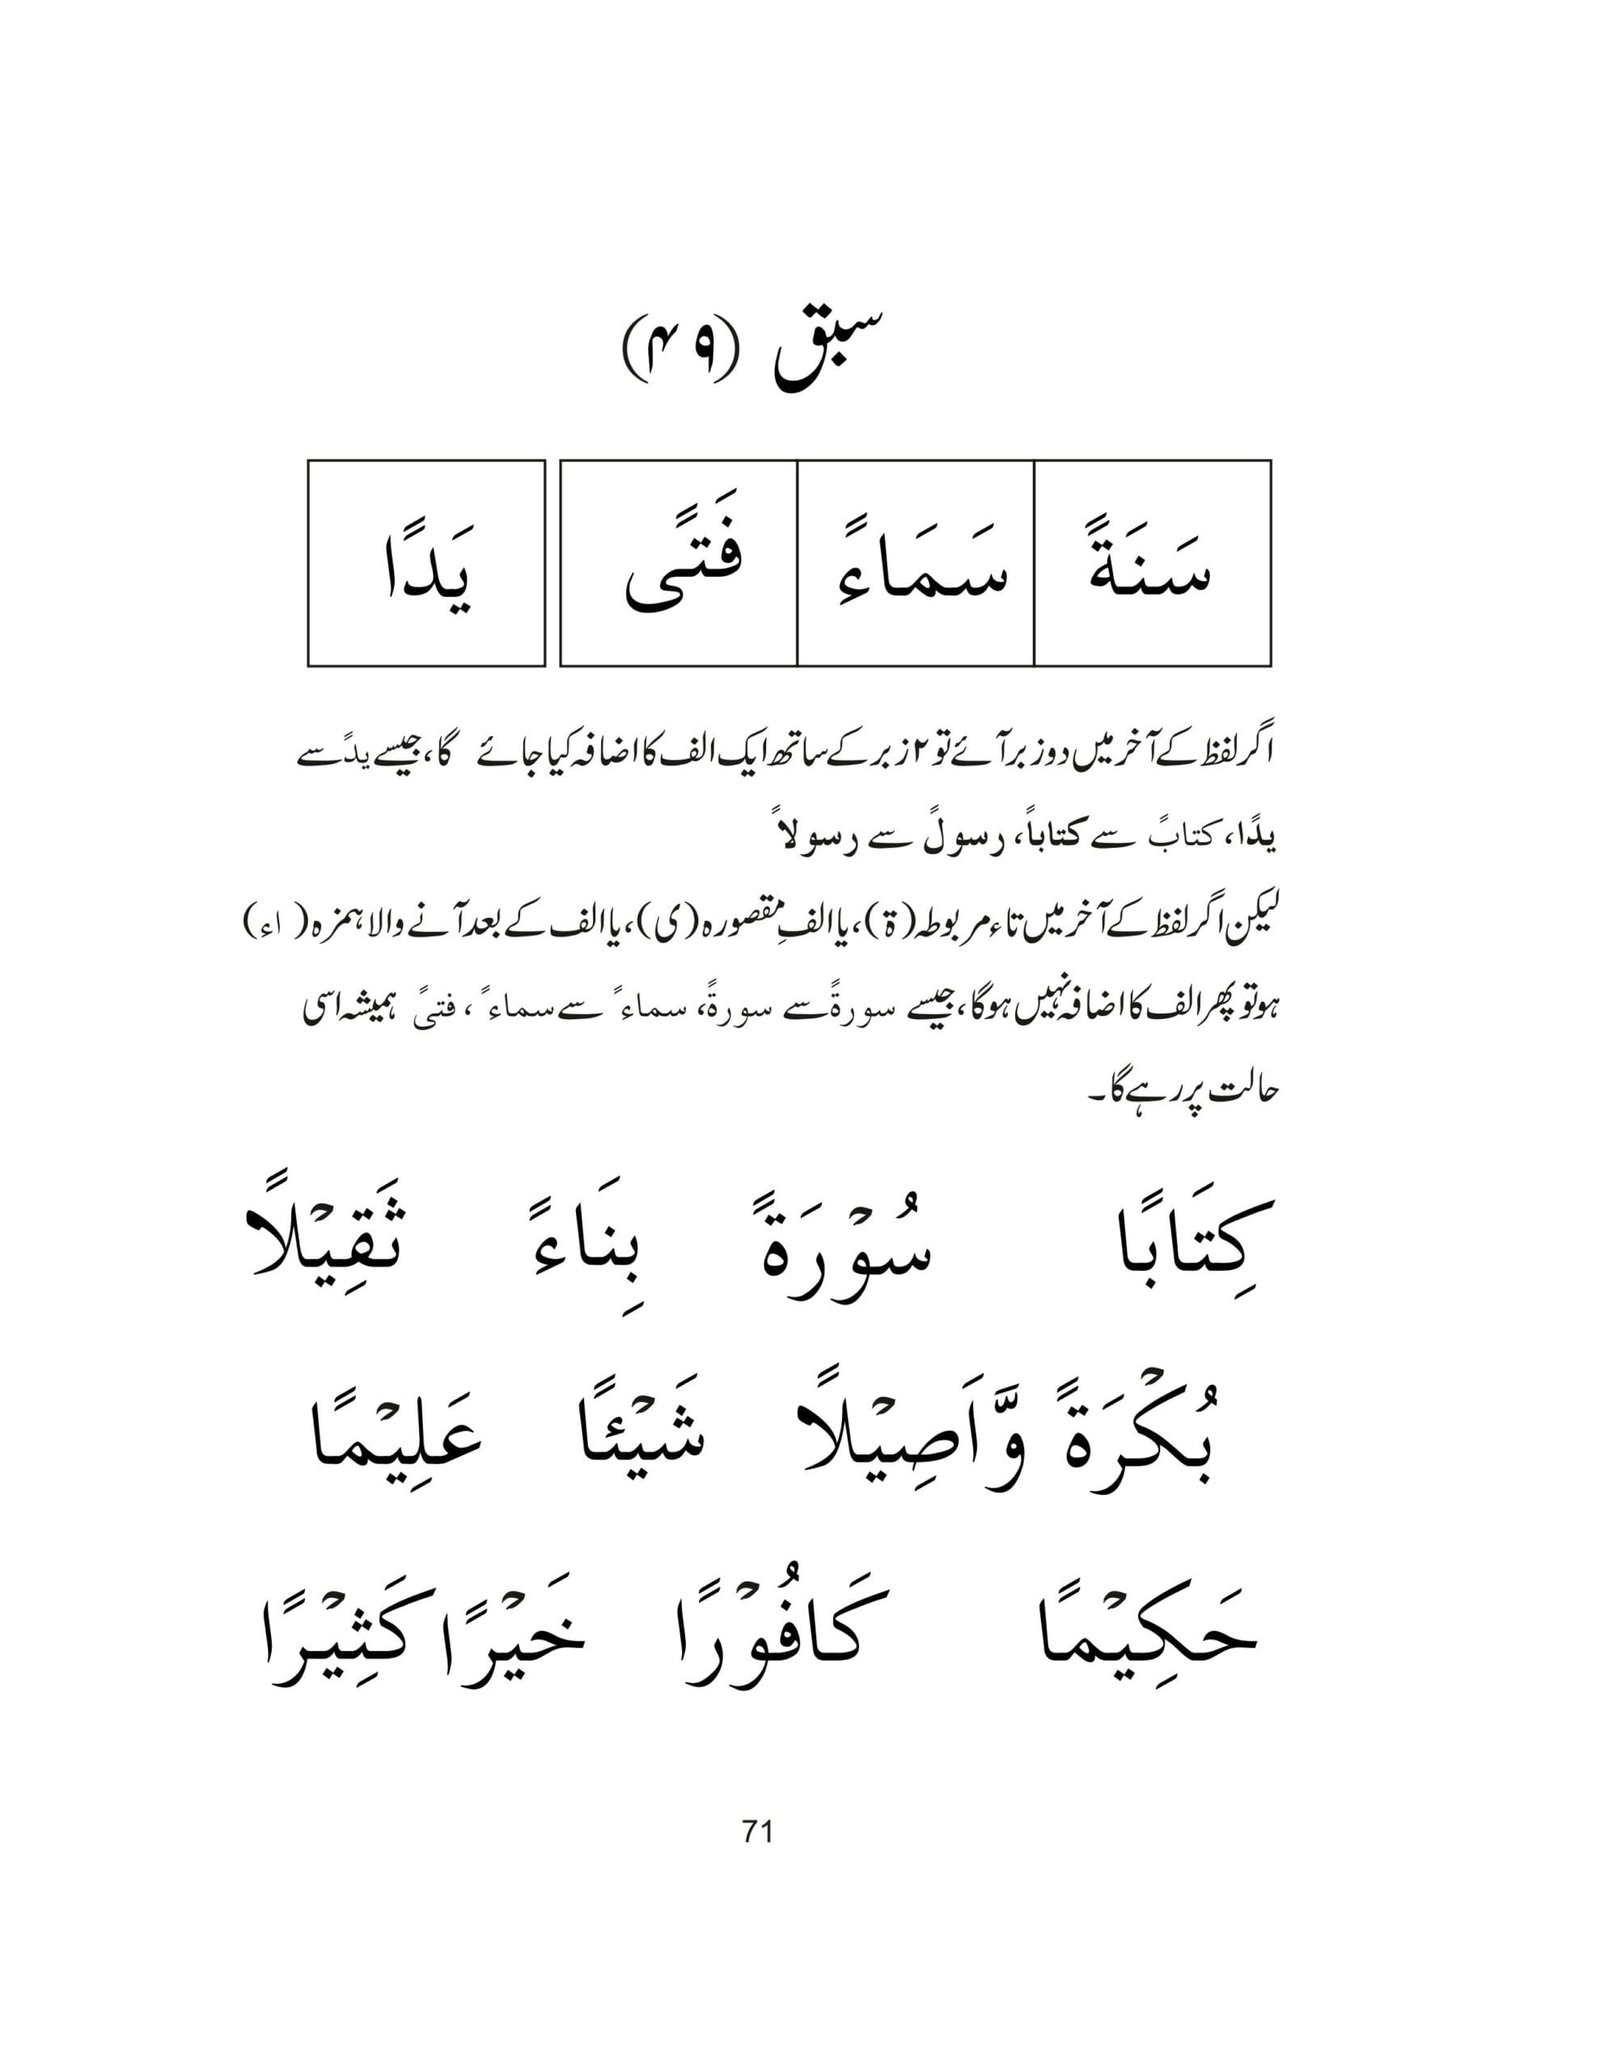 سبق (۴۹)
سَنَةً سَمَاءً فَتًى يَدًا
اگر لفظ کے آخر میں دو زبر آئے تو ۲ زبر کے ساتھ ایک الف کا اضافہ کیا جائے گا، جیسے یدً سے
یدًا، کتابً سے کتاباً، رسولً سے رسولاً
لیکن اگر لفظ کے آخر میں تاء مربوطہ (ة)، یا الفِ مقصورہ (ی)، یا الف کے بعد آنے والا ہمزہ (اء)
ہو تو پھر الف کا اضافہ نہیں ہوگا، جیسے سورةً سے سورةً، سماءً سے سماءً، فتیً ہمیشہ اسی
حالت پر رہے گا۔
كِتَابًا سُوْرَةً بِنَاءً ثَقِيْلًا
بُكْرَةً وَّاَصِيْلًا شَيْئًا عَلِيْمًا
حَكِيْمًا كَافُوْرًا خَيْرًا كَثِيْرًا
71